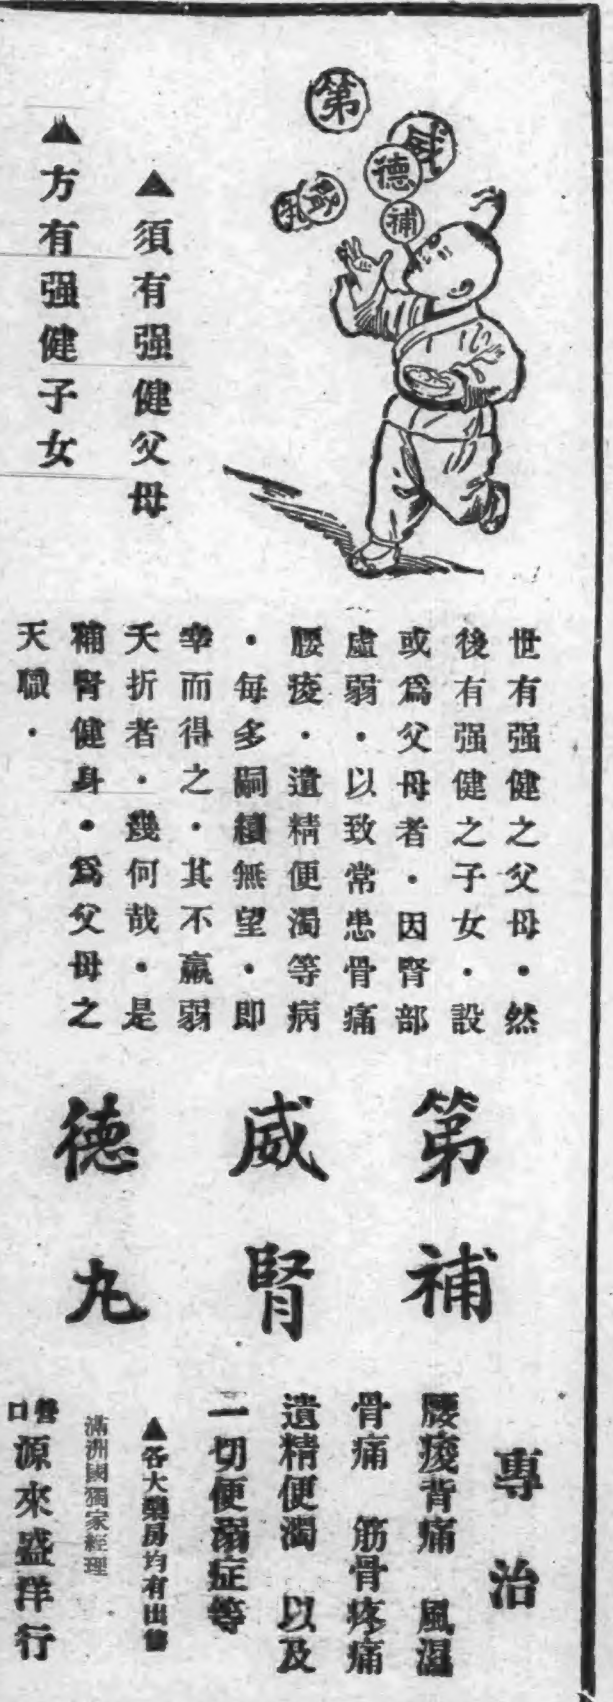 第
威
德
補
腎
丸
▲須有强健父母
▲方有强健子女
世有强健之父母・然
後有强健之子女・設
或爲父母者・因腎部
虛弱・以致常患骨痛
腰痠・遺精便濁等病
・每多嗣續無望・即
幸而得之・其不羸弱
夭折者・幾何哉・是
補腎健身・爲父母之
天職・
第威德
補腎丸
專治
腰痠背痛 風濕
骨痛 筋骨疼痛
遺精便濁 以及
一切便溺症等
▲各大藥房均有出售
滿洲國獨家經理
營口源來盛洋行